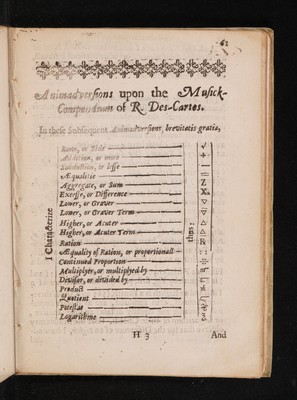 61
Animadversions upon the Musick-
Compendium of R. Des-Cartes.
In these Subsequent Animadversions, brevitatis gratia,
I Characterize
thus:
Roote, or Side
Addition, or more
Subduction, or lesse
Æqualitie
Aggregate, or Sum
Excesse, or Difference
Lower, or Graver
Lower, or Graver Term
Higher, or Acuter
Higher, or Acuter Term
Ration
Æquality of Ration, or proportionall
Continued Proportion
Multiplyer, or multiplyed by
Divisor, or divided by
Product
Quotient
Potestas
Logarithme
√
+
−
=
Z
X
▽
△
R
::
H 3 And